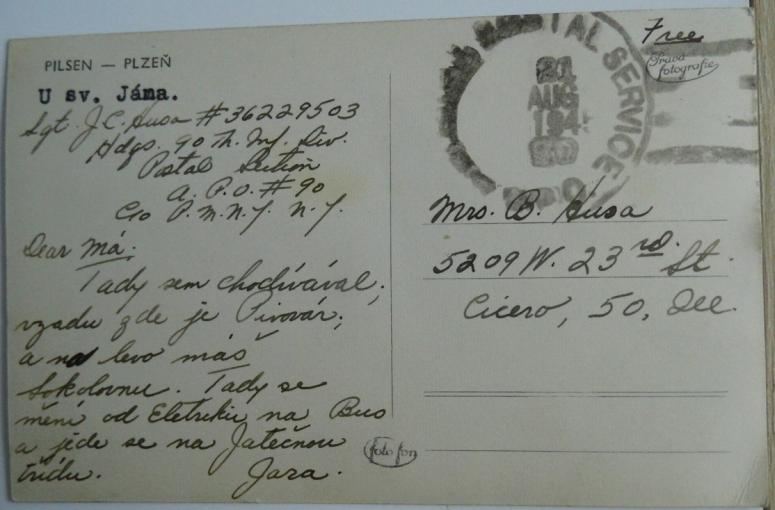 PILSEN — PLZEŇ
U sv. Jána.
Sgt. J. C. Husa # 36229503
Hdqs. 90 th. Inf. Div.
Postal Section
A. P. O. # 90
C/o P. M. N. Y. N. Y.
Dear Má.
Tady sem chodívával,
vzadu zde je Pivovár,
a na levo máš
Sokolovnu. Tady se
mění od Eletriku na Bus
a jede se na Jatečnou
třídu. Jara.
foto fon
POSTAL SERVICE
21
AUG
194
Free
Pravá
fotografie
Mrs. B. Husa
5209 W. 23 rd. St.
Cicero, 50, Ill.